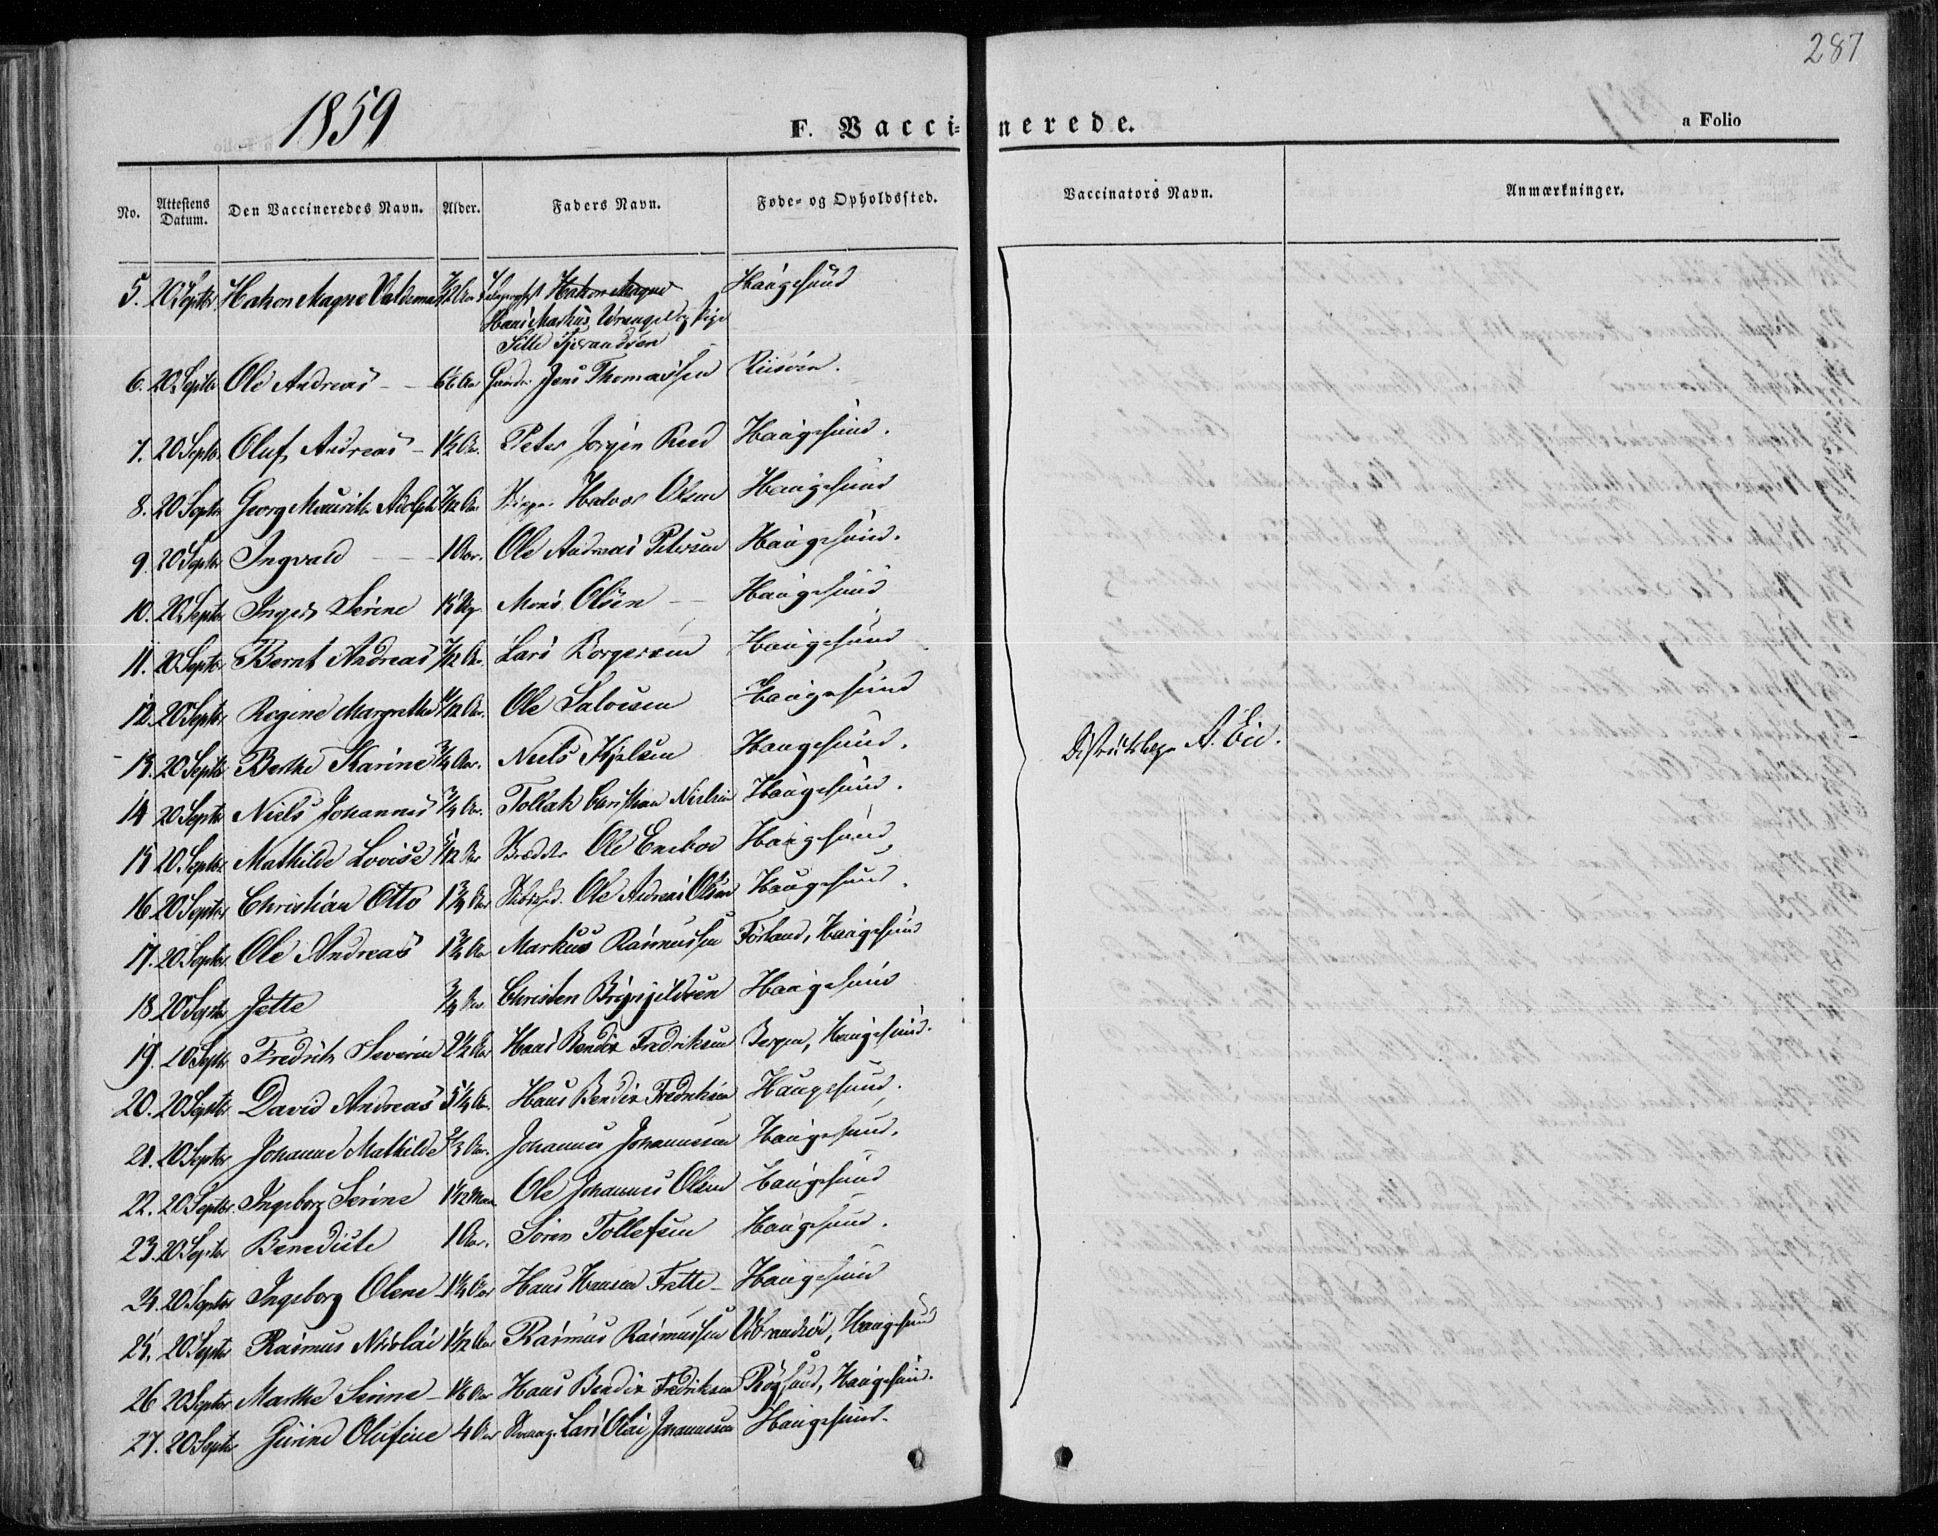 287
1859
F. Vaccinerede.
a Folio
No. Attestens Datum. Den Vaccineredes Navn. Alder. Faders Navn. Føde- og Opholdssted. Vaccinators Navn. Anmærkninger.
5. 20 Septbr Hakon Magne Valdemar 7/12 Aar Hakon Magne Haugesund
Hans Markus Wrangel og Pige
Sille Tjerandsen
6. 20 Septbr Ole Andreas Jens Thomassen
7. 20 Septbr. Oluf Andreas 1½ Aar. Peter Jørgen Haugesund.
8. 20 Septbr Georg Mauritz Adolph 7/12 Aar Halvor Olsen Haugesund
9. 20 Septbr Ingvald 1 Aar. Ole Andreas Petersen Haugesund.
10. 20 Septbr Inger Serine Mons Olsen Haugesund
11. 20 Septbr Bernt Andreas 7/12 Aar Lars Borgersen Haugesund
12. 20 Septbr Regine Margrethe Ole Salvesen Haugesund
13. 20 Septbr Berthe Karine ¾ Aar. Niels Kjelsen Haugesund.
Distriktslæge A. Eie.
14 20 Septbr Niels Johannes ¾ Aar. Tollak Christian Nielsen Haugesund.
15 20 Septbr Mathilde Lovise 5/12 Aar Ole Haugesund,
16 20 Septbr Christian Otto 1¾ Aar Ole Andreas Olsen Haugesund.
17. 20 Septbr. Ole Andreas 1¾ Aar Markus Rasmussen Førland, Haugesund
18 20 Septbr Jette ¾ Aar Christen Brynjeldsen Haugesund
19. 20 Septbr Fredrik Severin 2½ Aar Hans Bendix Fredriksen Bergen, Haugesund.
20. 20 Septbr David Andreas 5¼ Aar. Hans Bendix Fredriksen Haugesund.
21. 20 Septbr Johanne Mathilde ⅔ Aar. Johannes Johannessen Haugesund.
22. 20 Septbr. Ingeborg Serine Ole Johannes Olsen Haugesund
23. 20 Septbr Benedicte 1 Aar. Sören Tollefsen Haugesund.
24. 20 Septbr Ingeborg Olene Hans Hansen Fette Haugesund
25. 20 Septbr Rasmus Nicolai Rasmus Rasmussen Haugesund
26 20 Septbr Marthe Serine Hans Bendix Fredriksen Røgsund, Haugesund.
27. 20 Septbr Gurine Olufine 4 Aar Lars Olai Johannessen Haugesund.